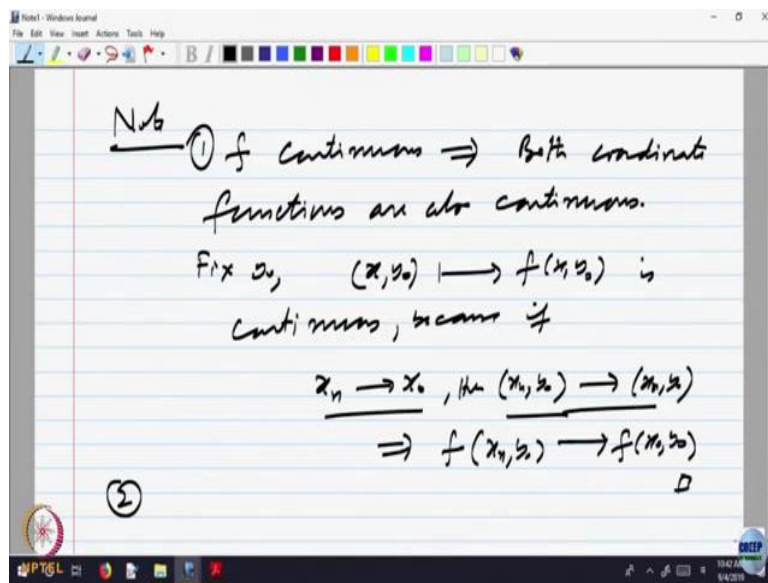 Note1 - Windows Journal
File Edit View Insert Actions Tools Help
B I
Note
① f continuous ⇒ Both coordinate
functions are also continuous.
Fix y₀, (x, y₀) ⟼ f(x, y₀) is
continuous, because if
xₙ → x₀, then (xₙ, y₀) → (x₀, y₀)
⇒ f(xₙ, y₀) → f(x₀, y₀)
□
②
NPTEL
CDEEP
10:42 AM
9/4/2019